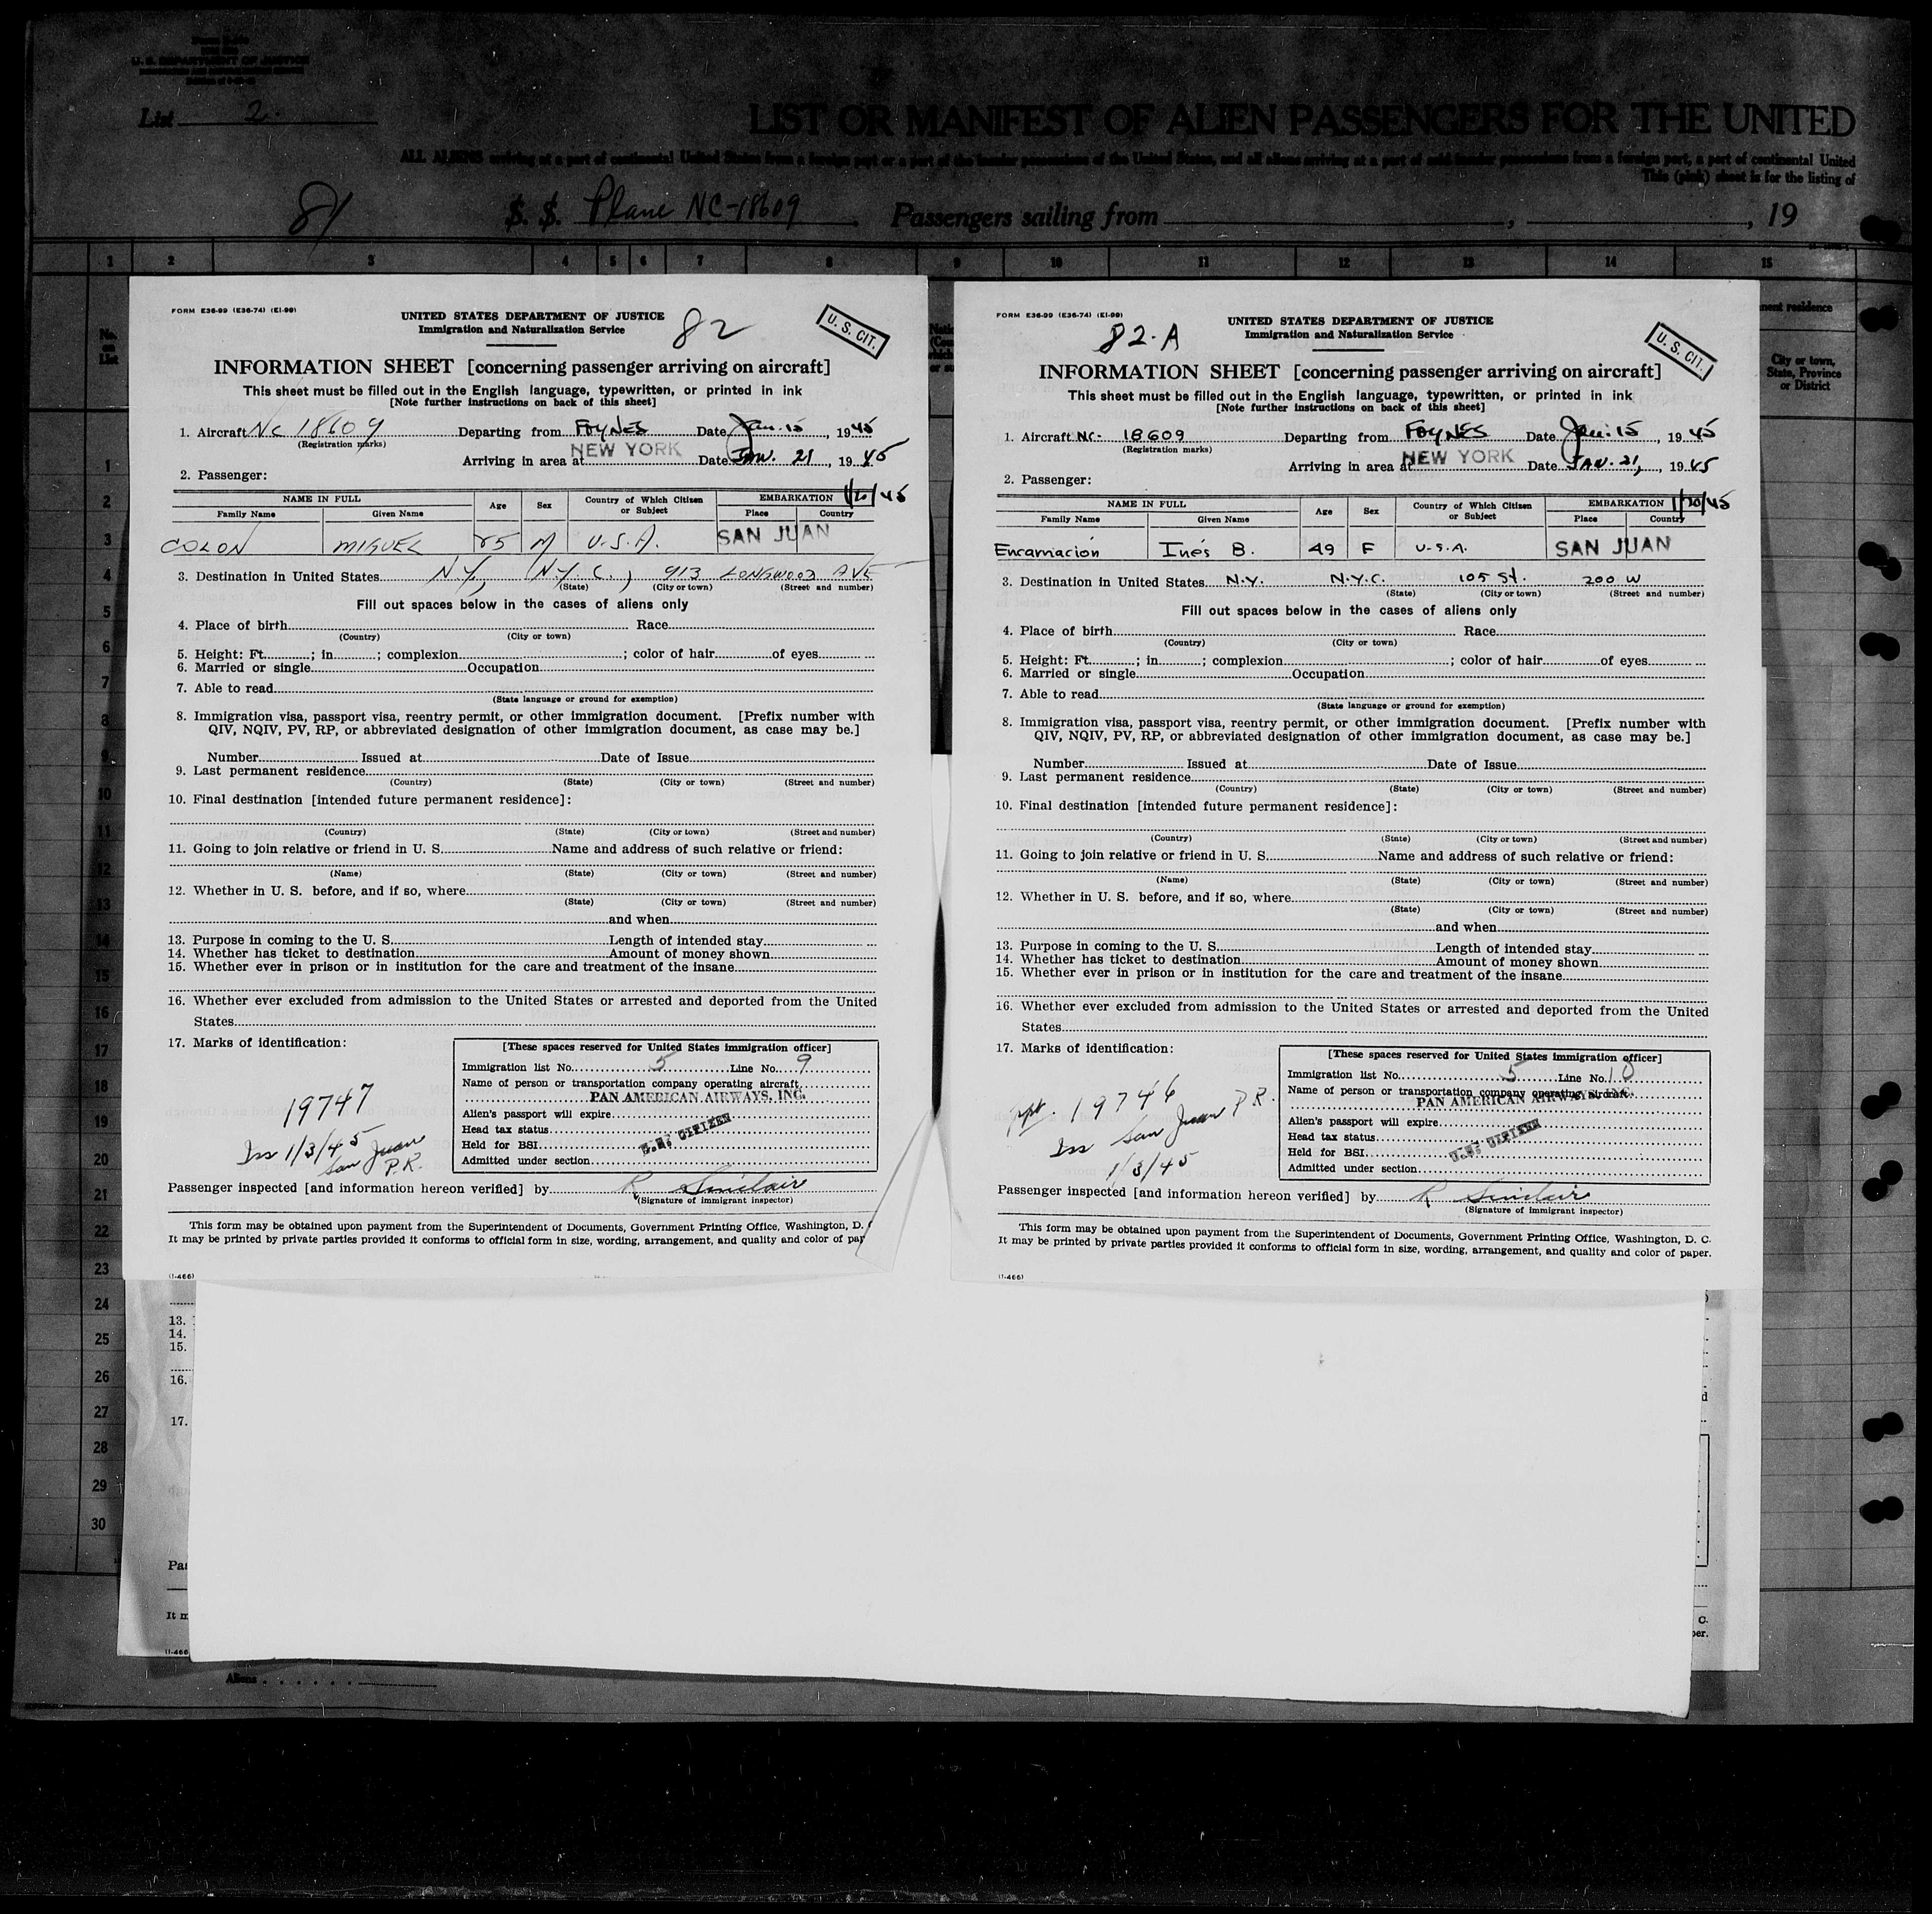 U. S. DEPARTMENT OF JUSTICE
List 2.
LIST OR MANIFEST OF ALIEN PASSENGERS FOR THE UNITED
ALL ALIENS arriving at a port of continental United States from a foreign port or a port of the insular possessions of the United States, and all aliens arriving at a port of said insular possessions from a foreign port, a port of continental United
This (pink) sheet is for the listing of
81 S. S. Plane NC-18609 Passengers sailing from , , 19
1 2 3 4 5 6 7 8 9 10 11 12 13 14 15
No. on List
nent residence
City or town, State, Province or District
FORM E36-99 (E36-74) (E1-99)
UNITED STATES DEPARTMENT OF JUSTICE
Immigration and Naturalization Service
82
U. S. CIT.
INFORMATION SHEET [concerning passenger arriving on aircraft]
This sheet must be filled out in the English language, typewritten, or printed in ink
[Note further instructions on back of this sheet]
1. Aircraft NC 18609 Departing from FOYNES Date Jan. 15, 1945
(Registration marks)
Arriving in area at NEW YORK Date JAN. 21, 1945
2. Passenger:
NAME IN FULL Age Sex Country of Which Citizen or Subject EMBARKATION 1/20/45
Family Name Given Name Place Country
COLON MIGUEL 25 M U.S.A. SAN JUAN
3. Destination in United States N.Y., N.Y.C., 913 LONGWOOD AVE
(State) (City or town) (Street and number)
Fill out spaces below in the cases of aliens only
4. Place of birth Race
(Country) (City or town)
5. Height: Ft. ; in. ; complexion ; color of hair of eyes
6. Married or single Occupation
7. Able to read
(State language or ground for exemption)
8. Immigration visa, passport visa, reentry permit, or other immigration document. [Prefix number with
QIV, NQIV, PV, RP, or abbreviated designation of other immigration document, as case may be.]
Number Issued at Date of Issue
9. Last permanent residence
(Country) (State) (City or town) (Street and number)
10. Final destination [intended future permanent residence]:
(Country) (State) (City or town) (Street and number)
11. Going to join relative or friend in U. S. Name and address of such relative or friend:
(Name) (State) (City or town) (Street and number)
12. Whether in U. S. before, and if so, where
(State) (City or town) (Street and number)
and when
13. Purpose in coming to the U. S. Length of intended stay
14. Whether has ticket to destination Amount of money shown
15. Whether ever in prison or in institution for the care and treatment of the insane
16. Whether ever excluded from admission to the United States or arrested and deported from the United
States
17. Marks of identification:
[These spaces reserved for United States immigration officer]
Immigration list No. 5 Line No. 9
Name of person or transportation company operating aircraft
PAN AMERICAN AIRWAYS, INC.
Alien's passport will expire
Head tax status
Held for BSI
U.S. CITIZEN
Admitted under section
19747
Iss 1/3/45
San Juan
P.R.
Passenger inspected [and information hereon verified] by R Sinclair
(Signature of immigrant inspector)
This form may be obtained upon payment from the Superintendent of Documents, Government Printing Office, Washington, D.
It may be printed by private parties provided it conforms to official form in size, wording, arrangement, and quality and color of pap
(1-466)
FORM E36-99 (E36-74) (E1-99)
UNITED STATES DEPARTMENT OF JUSTICE
Immigration and Naturalization Service
82-A
U. S. CIT.
INFORMATION SHEET [concerning passenger arriving on aircraft]
This sheet must be filled out in the English language, typewritten, or printed in ink
[Note further instructions on back of this sheet]
1. Aircraft NC- 18609 Departing from FOYNES Date Jan. 15, 1945
(Registration marks)
Arriving in area at NEW YORK Date JAN. 21, 1945
2. Passenger:
NAME IN FULL Age Sex Country of Which Citizen or Subject EMBARKATION 1/20/45
Family Name Given Name Place Country
Encarnación Inés B. 49 F U.S.A. SAN JUAN
3. Destination in United States N.Y. N.Y.C. 105 St. 200 W
(State) (City or town) (Street and number)
Fill out spaces below in the cases of aliens only
4. Place of birth Race
(Country) (City or town)
5. Height: Ft. ; in. ; complexion ; color of hair of eyes
6. Married or single Occupation
7. Able to read
(State language or ground for exemption)
8. Immigration visa, passport visa, reentry permit, or other immigration document. [Prefix number with
QIV, NQIV, PV, RP, or abbreviated designation of other immigration document, as case may be.]
Number Issued at Date of Issue
9. Last permanent residence
(Country) (State) (City or town) (Street and number)
10. Final destination [intended future permanent residence]:
(Country) (State) (City or town) (Street and number)
11. Going to join relative or friend in U. S. Name and address of such relative or friend:
(Name) (State) (City or town) (Street and number)
12. Whether in U. S. before, and if so, where
(State) (City or town) (Street and number)
and when
13. Purpose in coming to the U. S. Length of intended stay
14. Whether has ticket to destination Amount of money shown
15. Whether ever in prison or in institution for the care and treatment of the insane
16. Whether ever excluded from admission to the United States or arrested and deported from the United
States
17. Marks of identification:
[These spaces reserved for United States immigration officer]
Immigration list No. 5 Line No. 10
Name of person or transportation company operating aircraft
PAN AMERICAN AIRWAYS, INC.
Alien's passport will expire
Head tax status
Held for BSI
U.S. CITIZEN
Admitted under section
ppt. 19746
Iss San Juan P.R.
1/3/45
Passenger inspected [and information hereon verified] by R Sinclair
(Signature of immigrant inspector)
This form may be obtained upon payment from the Superintendent of Documents, Government Printing Office, Washington, D. C.
It may be printed by private parties provided it conforms to official form in size, wording, arrangement, and quality and color of paper.
(1-466)
1
2
3
4
5
6
7
8
9
10
11
12
13
14
15
16
17
18
19
20
21
22
23
24
25
26
27
28
29
30
13.
14.
15.
16.
17.
Pas
It m
(1-466
C.
per.
Aliens